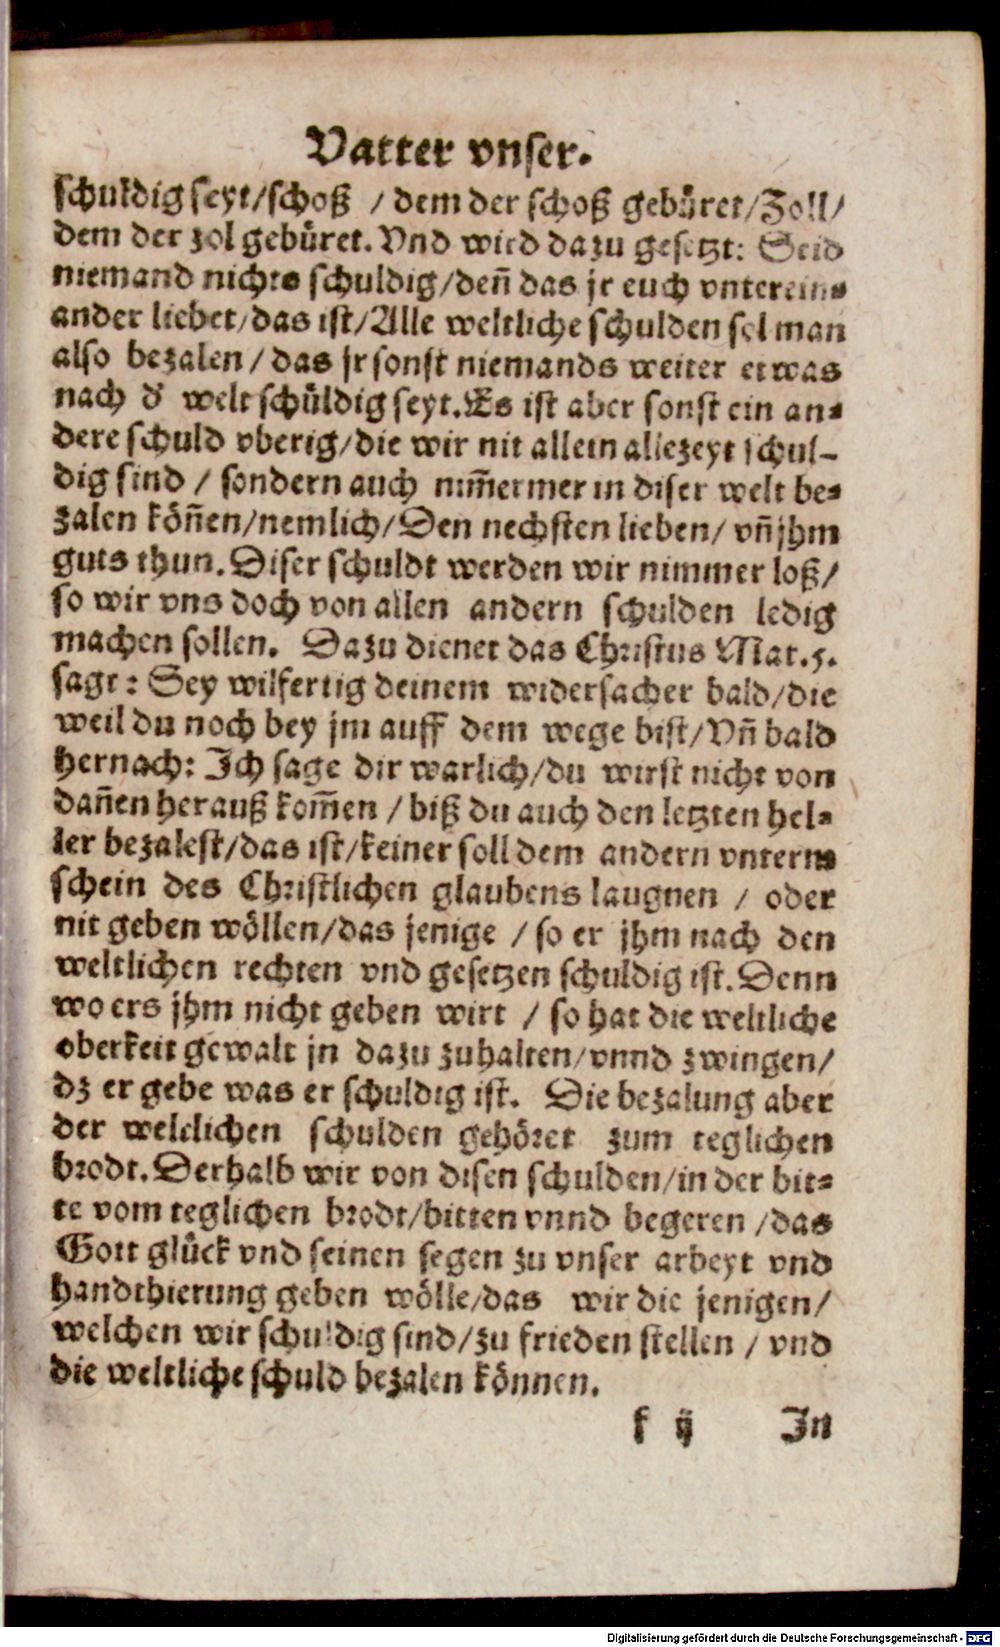 Vatter vnser.
schuldig seyt/schoß / dem der schoß gebüret/Zoll/
dem der zol gebüret. Vnd wird dazu gesetzt: Seid
niemand nichts schuldig/deñ das jr euch vntereins⸗
ander liebet/das ist/Alle weltliche schulden sol man
also bezalen / das jr sonst niemands weiter etwas
nach d̕ welt schüldig seyt. Es ist aber sonst ein an⸗
dere schuld vberig/die wir nit allein allezeyt schul-
dig sind / sondern auch nim̃ermer in diser welt be⸗
zalen köñen/nemlich/Den nechsten lieben/ vñ jhm
guts thun. Diser schuldt werden wir nimmer loß/
so wir vns doch von allen andern schulden ledig
machen sollen. Dazu dienet das Christus Mat. 5.
sagt: Sey wilfertig deinem widersacher bald/die
weil du noch bey jm auff dem wege bist/Vñ bald
hernach: Ich sage dir warlich/du wirst nicht von
dañen herauß kom̃en / biß du auch den letzten hel⸗
ler bezalest/das ist/keiner soll dem andern vnterm
schein des Christlichen glaubens laugnen / oder
nit geben wöllen/das jenige / so er jhm nach den
weltlichen rechten vnd gesetzen schuldig ist. Denn
wo ers jhm nicht geben wirt / so hat die weltliche
oberkeit gewalt jn dazu zuhalten/vnnd zwingen/
dz er gebe was er schuldig ist. Die bezalung aber
der weltlichen schulden gehöret zum teglichen
brodt. Derhalb wir von disen schulden/in der bit⸗
te vom teglichen brodt/bitten vnnd begeren /das
Gott glück vnd seinen segen zu vnser arbeyt vnd
handthierung geben wölle/das wir die jenigen/
welchen wir schuldig sind/zu frieden stellen / vnd
die weltliche schuld bezalen können.
k ij In
Digitalisierung gefördert durch die Deutsche Forschungsgemeinschaft - DFG